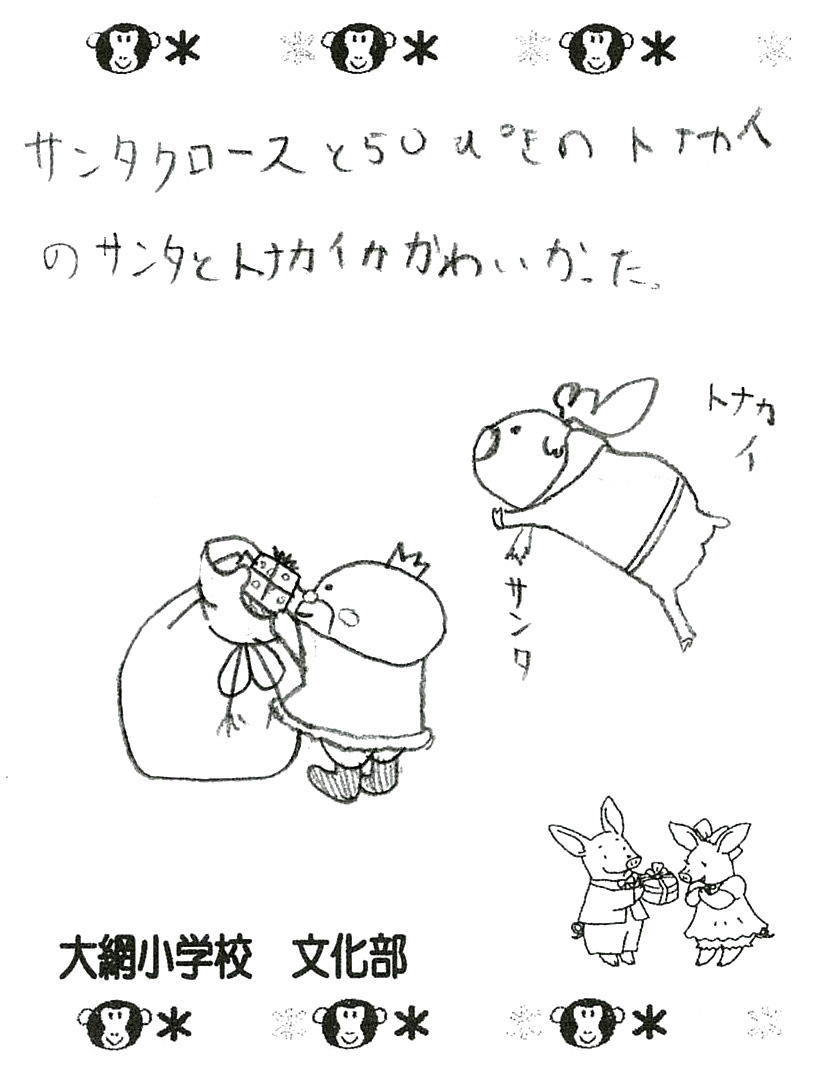 サンタクロースと50ぴきのトナカイ
のサンタとトナカイがかわいかった。
トナカ
イ
サンタ
大網小学校 文化部